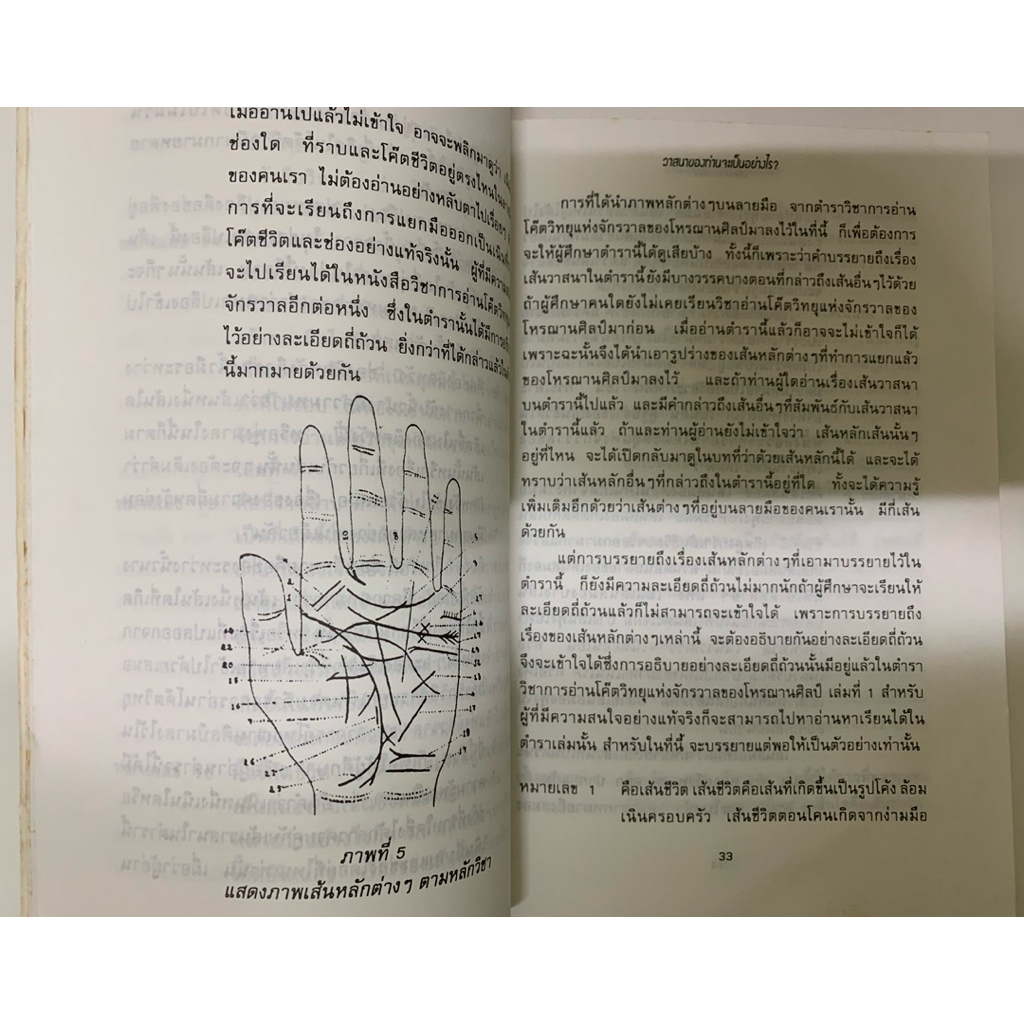 เมื่ออ่านไปแล้วไม่เข้าใจ อาจจะพลิกมาดูว่า
ช่องใด ที่ราบและโค๊ตชีวิตอยู่ตรงไหน
ของคนเรา ไม่ต้องอ่านอย่างหลับตาไปเรื่อยๆ
การที่จะเรียนถึงการแยกมือออกเป็น
โค๊ตชีวิตและช่องอย่างแท้จริงนั้น ผู้ที่มี
จะไปเรียนได้ในหนังสือวิชาการอ่าน
จักรวาลอีกต่อหนึ่ง ซึ่งในตำรานั้นได้มีการ
ไว้อย่างละเอียดถี่ถ้วน ยิ่งกว่าที่ได้กล่าวแล้ว
นี้มากมายด้วยกัน
ภาพที่ 5
แสดงภาพเส้นหลักต่างๆ ตามหลักวิชา
วาสนาของท่านจะเป็นอย่างไร?
การที่ได้นำภาพหลักต่างๆบนลายมือ จากตำราวิชาการอ่าน
โค๊ตวิทยุแห่งจักรวาลของโหรณานศิลป์มาลงไว้ในที่นี้ ก็เพื่อต้องการ
จะให้ผู้ศึกษาตำรานี้ได้ดูเสียบ้าง ทั้งนี้ก็เพราะว่าคำบรรยายถึงเรื่อง
เส้นวาสนาในตำรานี้ยังมีบางวรรคบางตอนที่กล่าวถึงเส้นอื่นๆไว้ด้วย
ถ้าผู้ศึกษาคนใดยังไม่เคยเรียนวิชาอ่านโค๊ตวิทยุแห่งจักรวาลของ
โหรณานศิลป์มาก่อน เมื่ออ่านตำรานี้แล้วก็อาจจะไม่เข้าใจก็ได้
เพราะฉะนั้นจึงได้นำเอารูปร่างของเส้นหลักต่างๆที่ทำการแยกแล้ว
ของโหรณานศิลป์มาลงไว้ และถ้าท่านผู้ใดอ่านเรื่องเส้นวาสนา
บนตำรานี้ไปแล้ว และมีคำกล่าวถึงเส้นอื่นๆที่สัมพันธ์กับเส้นวาสนา
ในตำรานี้แล้ว ถ้าและท่านผู้อ่านยังไม่เข้าใจว่า เส้นหลักเส้นนั้นๆ
อยู่ที่ไหน จะได้เปิดกลับมาดูในบทที่ว่าด้วยเส้นหลักนี้ได้ และจะได้
ทราบว่าเส้นหลักอื่นๆที่กล่าวถึงในตำรานี้อยู่ที่ใด ทั้งจะได้ความรู้
เพิ่มเติมอีกด้วยว่าเส้นต่างๆที่อยู่บนลายมือของคนเรานั้น มีกี่เส้น
ด้วยกัน
แต่การบรรยายถึงเรื่องเส้นหลักต่างๆที่เอามาบรรยายไว้ใน
ตำรานี้ ก็ยังมีความละเอียดถี่ถ้วนไม่มากนักถ้าผู้ศึกษาจะเรียนให้
ละเอียดถี่ถ้วนแล้วก็ไม่สามารถจะเข้าใจได้ เพราะการบรรยายถึง
เรื่องของเส้นหลักต่างๆเหล่านี้ จะต้องอธิบายกันอย่างละเอียดถี่ถ้วน
จึงจะเข้าใจได้ซึ่งการอธิบายอย่างละเอียดถี่ถ้วนนั้นมีอยู่แล้วในตำรา
วิชาการอ่านโค๊ตวิทยุแห่งจักรวาลของโหรณานศิลป์ เล่มที่ 1 สำหรับ
ผู้ที่มีความสนใจอย่างแท้จริงก็จะสามารถไปหาอ่านหาเรียนได้ใน
ตำราเล่มนั้น สำหรับในที่นี้ จะบรรยายแต่พอให้เป็นตัวอย่างเท่านั้น
หมายเลข 1 คือเส้นชีวิต เส้นชีวิตคือเส้นที่เกิดขึ้นเป็นรูปโค้ง ล้อม
เนินครอบครัว เส้นชีวิตตอนโคนเกิดจากง่ามมือ
33